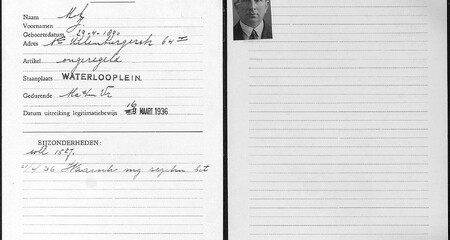 Naam
Voornamen J.
Geboortedatum 29-4-1890
Adres Nw Uilenburgerstr 64
Artikel ongeregeld
Staanplaats WATERLOOPLEIN.
Gedurende Ma t/m Vr
Datum uitreiking legitimatiebewijs 16 MAART 1936
BIJZONDERHEDEN:
soll 1527.